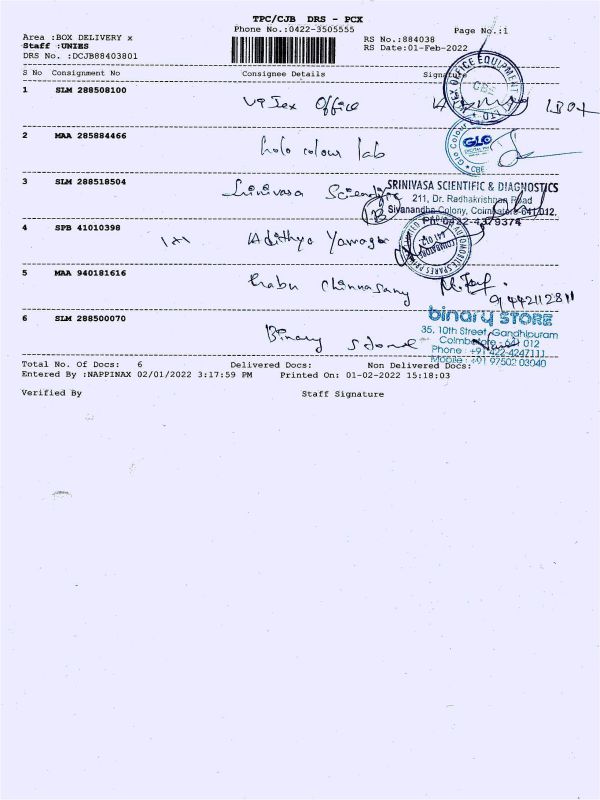 TPC/CJB DRS - PCX
Phone No.:0422-3505555
Page No.:1
Area :BOX DELIVERY x
RS No.:884038
Staff :UNIES
RS Date:01-Feb-2022
DRS No. :DCJB88403801
S No Consignment No Consignee Details Signature
1 SLM 288508100 Office
OFFICE EQUIPMENT
CBE
2 MAA 285884466 colour lab
Glo Colour
GLO
CBE
3 SLM 288518504 Srinivasa
SRINIVASA SCIENTIFIC & DIAGNOSTICS
211, Dr. Radhakrishnan Road
Sivanandha Colony, Coimbatore-641 012.
Ph: 0422-4379374
4 SPB 41010398 Adithya
AUTOMOBILE SPARES
COIMBATORE
641 012
5 MAA 940181616 Babu Chinnasamy
9442112811
6 SLM 288500070 Binary Store
binary STORE
35, 10th Street, Gandhipuram
Coimbatore - 641 012
Phone : +91 422 4247111
Mobile : +91 97502 03040
Total No. Of Docs: 6 Delivered Docs: Non Delivered Docs:
Entered By :NAPPINAX 02/01/2022 3:17:59 PM Printed On: 01-02-2022 15:18:03
Verified By Staff Signature